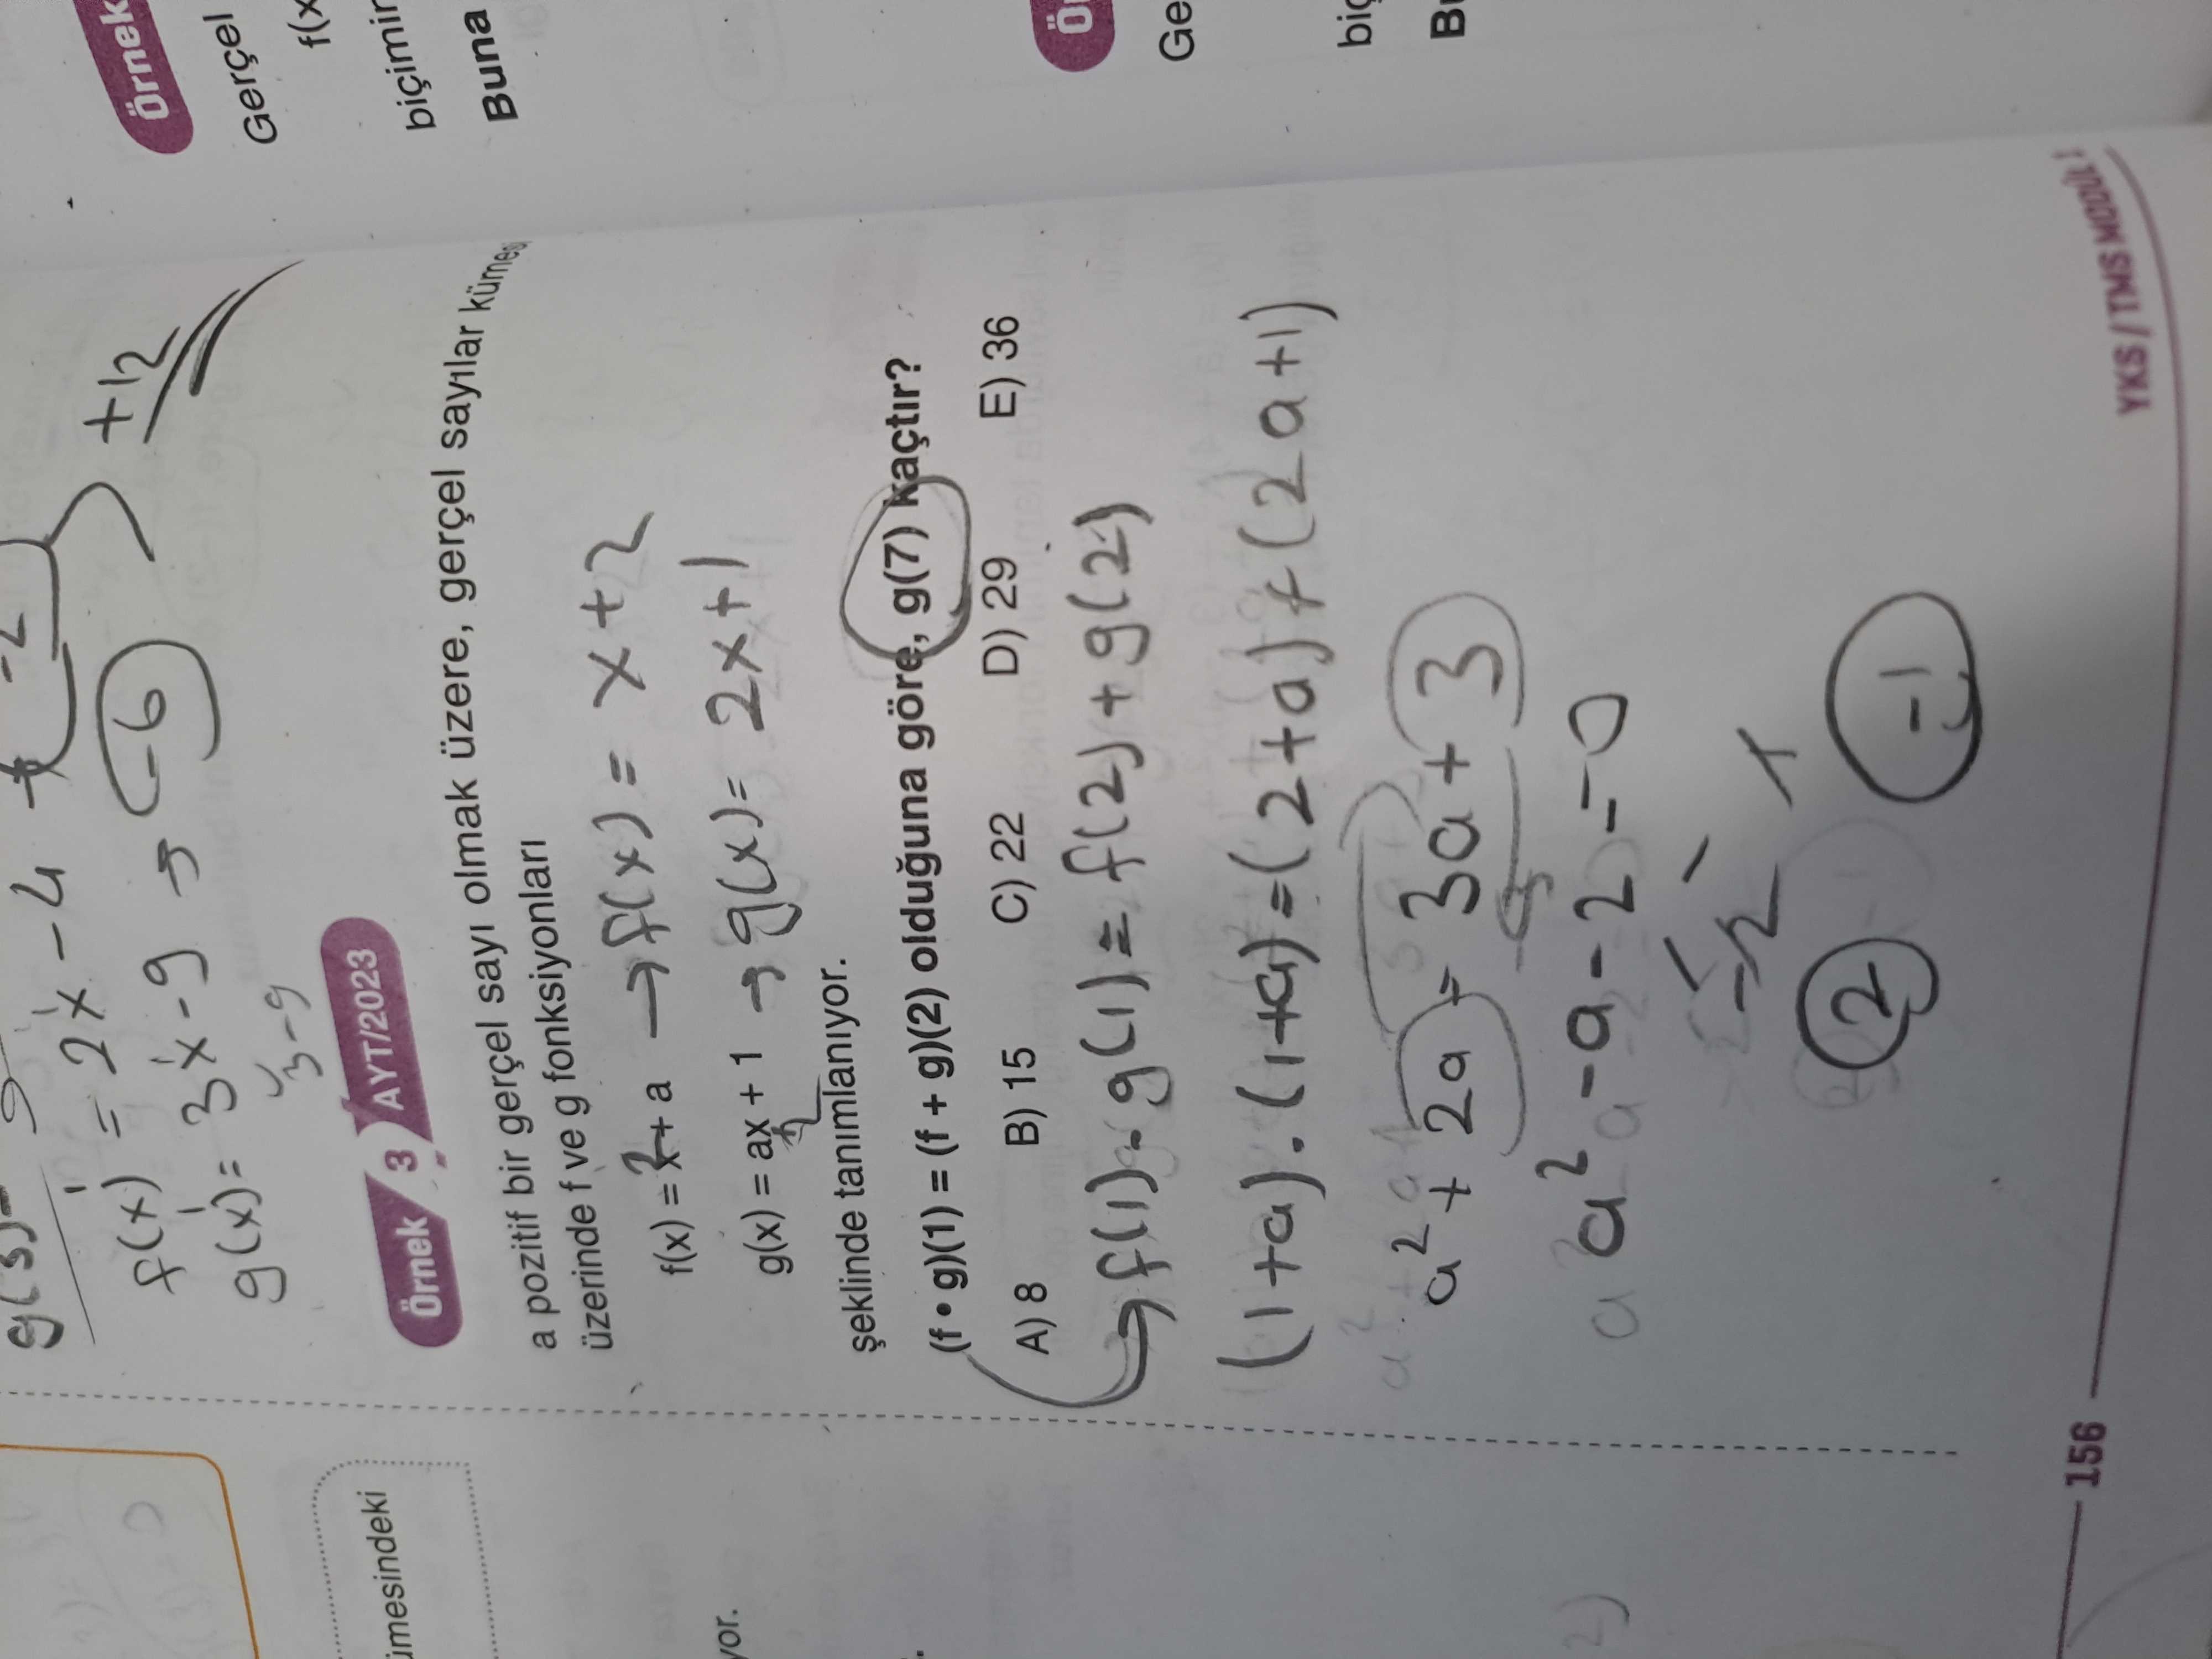 g(3)=
f(x) = 2x - 4
g(x) = 3x - 9 → -6
+12
3 - 9
Örnek 3 AYT/2023
a pozitif bir gerçel sayı olmak üzere, gerçel sayılar kümesi
üzerinde f ve g fonksiyonları
f(x) = x + a → f(x) = x + 2
g(x) = ax + 1 → g(x) = 2x + 1
şeklinde tanımlanıyor.
(f • g)(1) = (f + g)(2) olduğuna göre, g(7) kaçtır?
A) 8 B) 15 C) 22 D) 29 E) 36
f(1) . g(1) = f(2) + g(2)
(1+a) . (1+a) = (2+a) + (2a+1)
a² + 2a = 3a + 3
a² - a - 2 = 0
-2 1
2 -1
156
YKS / TMS MODÜL 1
ümesindeki
yor.
2)
Örnek
Gerçel
f(x
biçimin
Buna
Ör
Ge
biç
Bu